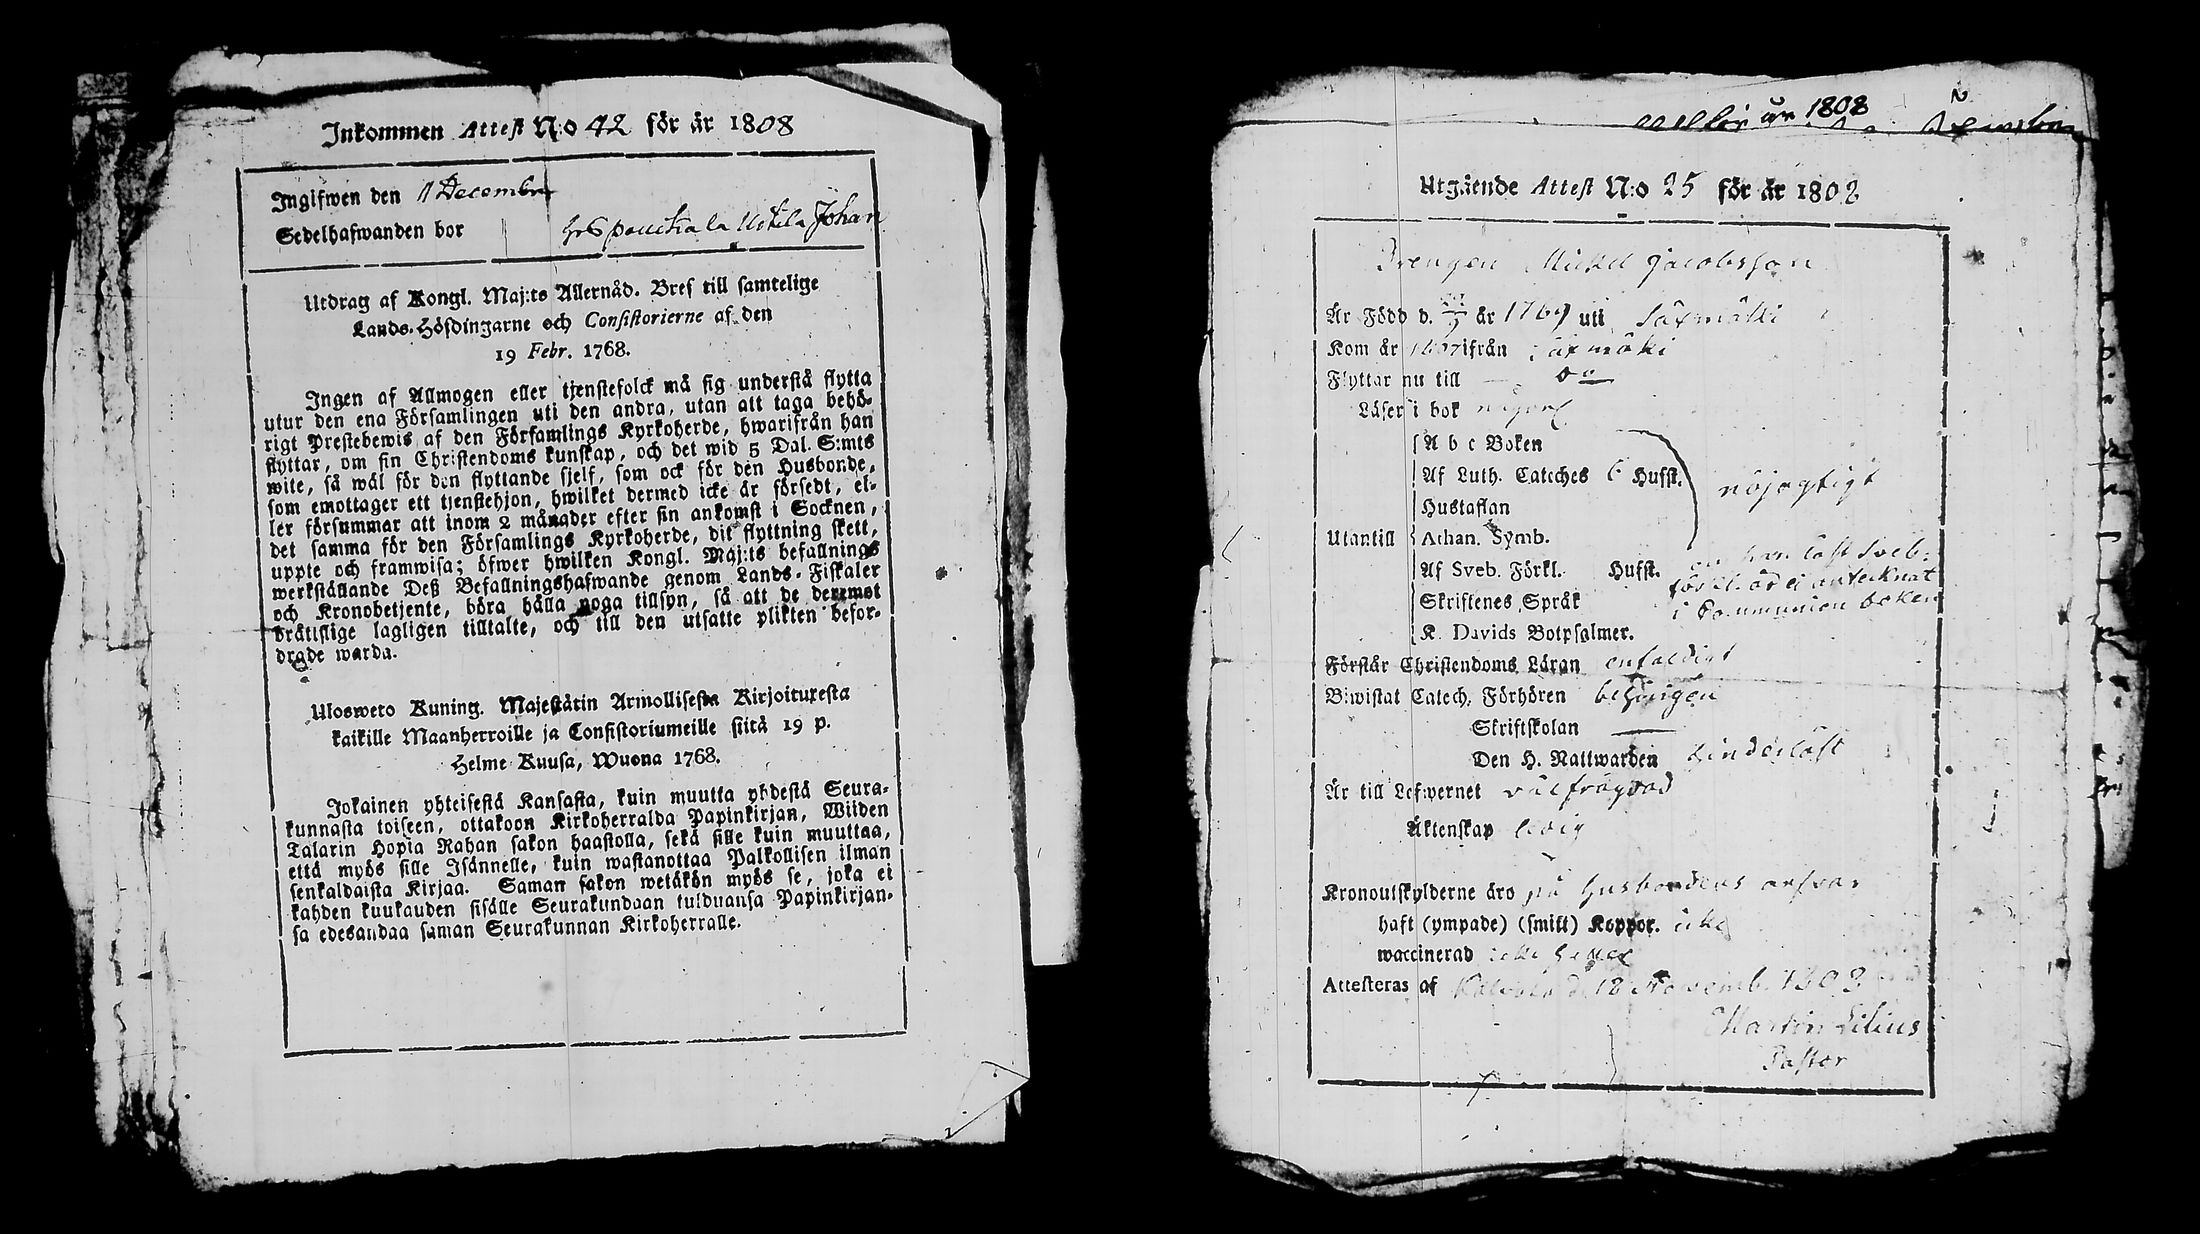 Inkommen Attest N:o 42 för år 1808
Ingifwen den 11 Decembr
Sedelhafwanden bor hos Johan
Utdrag af Kongl. Maj:ts Allernåd. Bref till samtelige
Lands-Höfdingarne och Consistorierne af den
19 Febr. 1768.
Ingen af Allmogen eller tjenstefolck må sig understå flytta
utur den ena Församlingen uti den andra, utan att taga behö-
rigt Prestebewis af den Församlings Kyrkoherde, hwarifrån han
flyttar, om sin Christendoms kunskap, och det wid 5 Dal. S:mts
wite, så wäl för den flyttande sjelf, som ock för den Husbonde,
som emottager ett tjenstehjon, hwilket dermed icke är försedt, el-
ler försummar att inom 2 månader efter sin ankomst i Socknen,
det samma för den Församlings Kyrkoherde, dit flyttning skett,
uppte och framwisa; öfwer hwilken Kongl. Maj:ts befallnings
werkställande Deß Befallningshafwande genom Lands-Fiskaler
och Kronobetjente, böra hålla noga tillsyn, så att de deremot
brätislige lagligen tilltalte, och till den utsatte plikten befor-
drade warda.
Ulosweto Kuning. Majestätin Armollisesta Kirjoituxesta
kaikille Maanherroille ja Consistoriumeille siitä 19 p.
Helme Kuusa, Wuona 1768.
Jokainen yhteisestä Kansasta, kuin muutta yhdestä Seura-
kunnasta toiseen, ottakoon Kirkoherralda Papinkirjan, Wiiden
Talarin Hopia Rahan sakon haastolla, sekä sille kuin muuttaa,
että myös sille Isännelle, kuin wastanottaa Palkollisen ilman
senkaldaista Kirjaa. Saman sakon wetäkön myös se, joka ei
kahden kuukauden sisälle Seurakundaan tulduansa Papinkirjan-
sa edesandaa saman Seurakunnan Kirkoherralle.
år 1808
Utgående Attest N:o 25 för år 1808
Drengen Mickel Jacobsson
Är Född d. år 1769 uti Säxmäki
Kom år 1807 ifrån Säxmäki
Flyttar nu till
Läser i bok någorl
A b c Boken
Af Luth. Cateches & Husst. nöjagtigt
Hustaflan
Utantill Athan. Symb.
Af Sveb. Förkl. Husst. om han läst Sveb:
Skriftenes Språk förkl. är ei antecknat
K. Davids Botpsalmer. i Communion boken
Förstår Christendoms Läran enfaldigt
Biwistat Catech. Förhören betingen
Skriftskolan
Den H. Nattwarden hinderlöst
Är till Lefwernet välfrägdad
Äktenskap ledig
Kronoutskylderne äro på husbondens ansvar
haft (ympade) (smitt) Koppor. icke
waccinerad icke heller
Attesteras af Kalvola d. 18 Novemb. 1808
Martin Lilius
Pastor